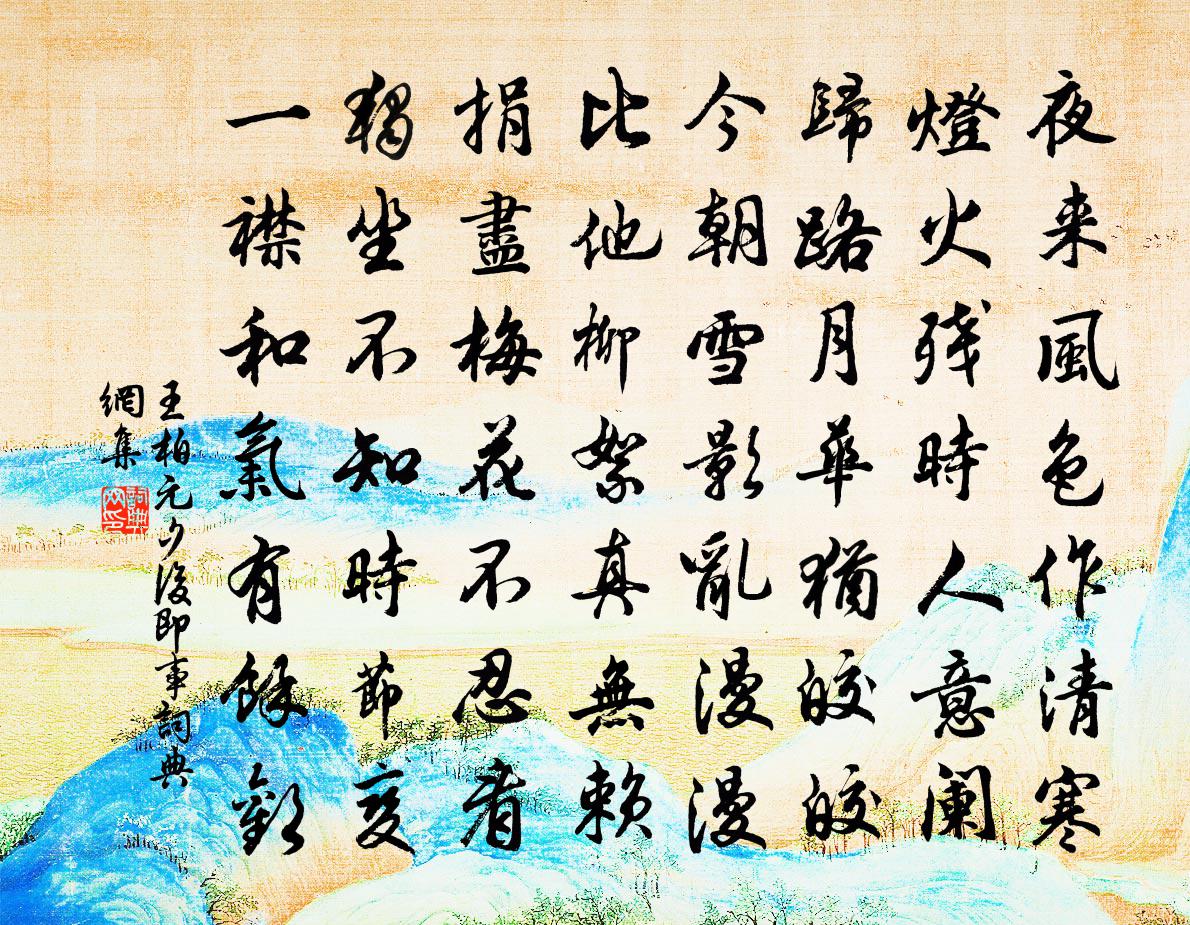 夜来風色作清寒
燈火残時人意阑
歸路月華猶皎皎
今朝雪影亂漫漫
比他柳絮真無賴
捐盡梅花不忍看
獨坐不知時節变
一襟和氣有餘歡
王柏元夕後即事詞典
網集
詞典
网印